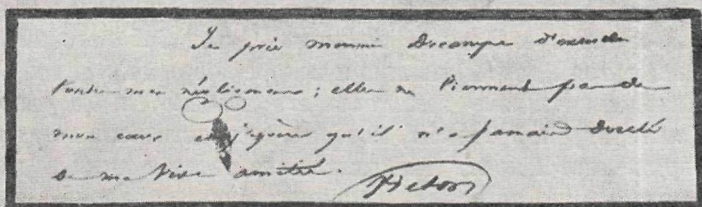 Je prie monsieur Decamps d'excuser
toutes mes négligences ; elles ne viennent pas de
mon cœur et j'espère qu'il n'a jamais douté
de ma vive amitié.